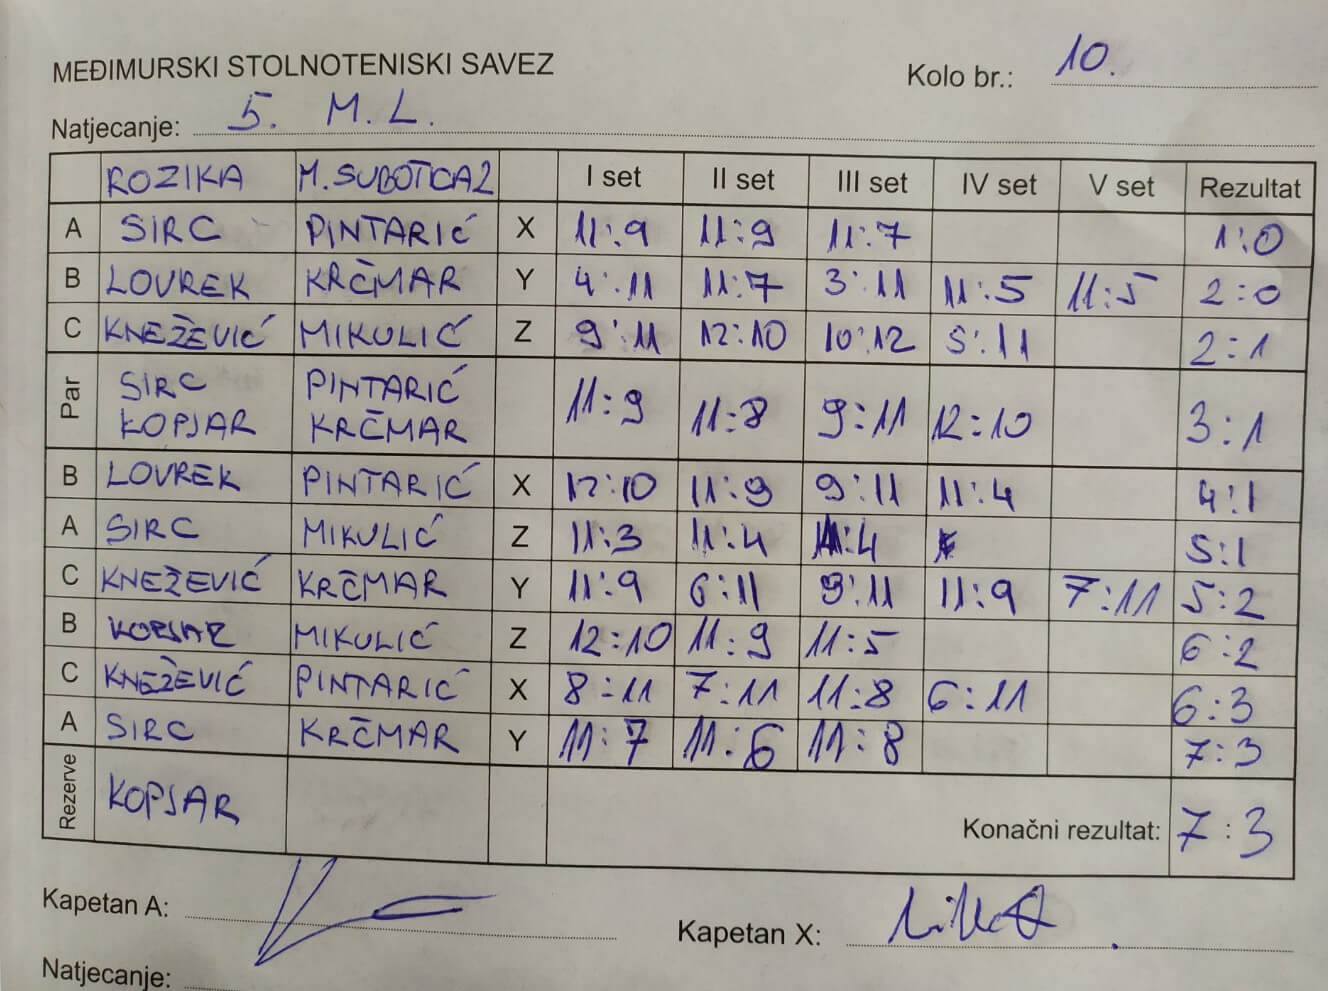 MEĐIMURSKI STOLNOTENISKI SAVEZ
Kolo br.: 10.
Natjecanje: 5. M.L.
ROZIKA M.SUBOTICA2 I set II set III set IV set V set Rezultat
A SIRC PINTARIĆ X 11:9 11:9 11:7 1:0
B LOVREK KRČMAR Y 4:11 11:7 3:11 11:5 11:5 2:0
C KNEŽEVIĆ MIKULIĆ Z 9:11 12:10 10:12 5:11 2:1
Par SIRC PINTARIĆ 11:9 11:8 9:11 12:10 3:1
KOPJAR KRČMAR
B LOVREK PINTARIĆ X 12:10 11:9 9:11 11:4 4:1
A SIRC MIKULIĆ Z 11:3 11:4 11:4 5:1
C KNEŽEVIĆ KRČMAR Y 11:9 6:11 9:11 11:9 7:11 5:2
B KOPJAR MIKULIĆ Z 12:10 11:9 11:5 6:2
C KNEŽEVIĆ PINTARIĆ X 8:11 7:11 11:8 6:11 6:3
A SIRC KRČMAR Y 11:7 11:6 11:8 7:3
Rezerve KOPJAR Konačni rezultat: 7:3
Kapetan A:
Kapetan X:
Natjecanje: